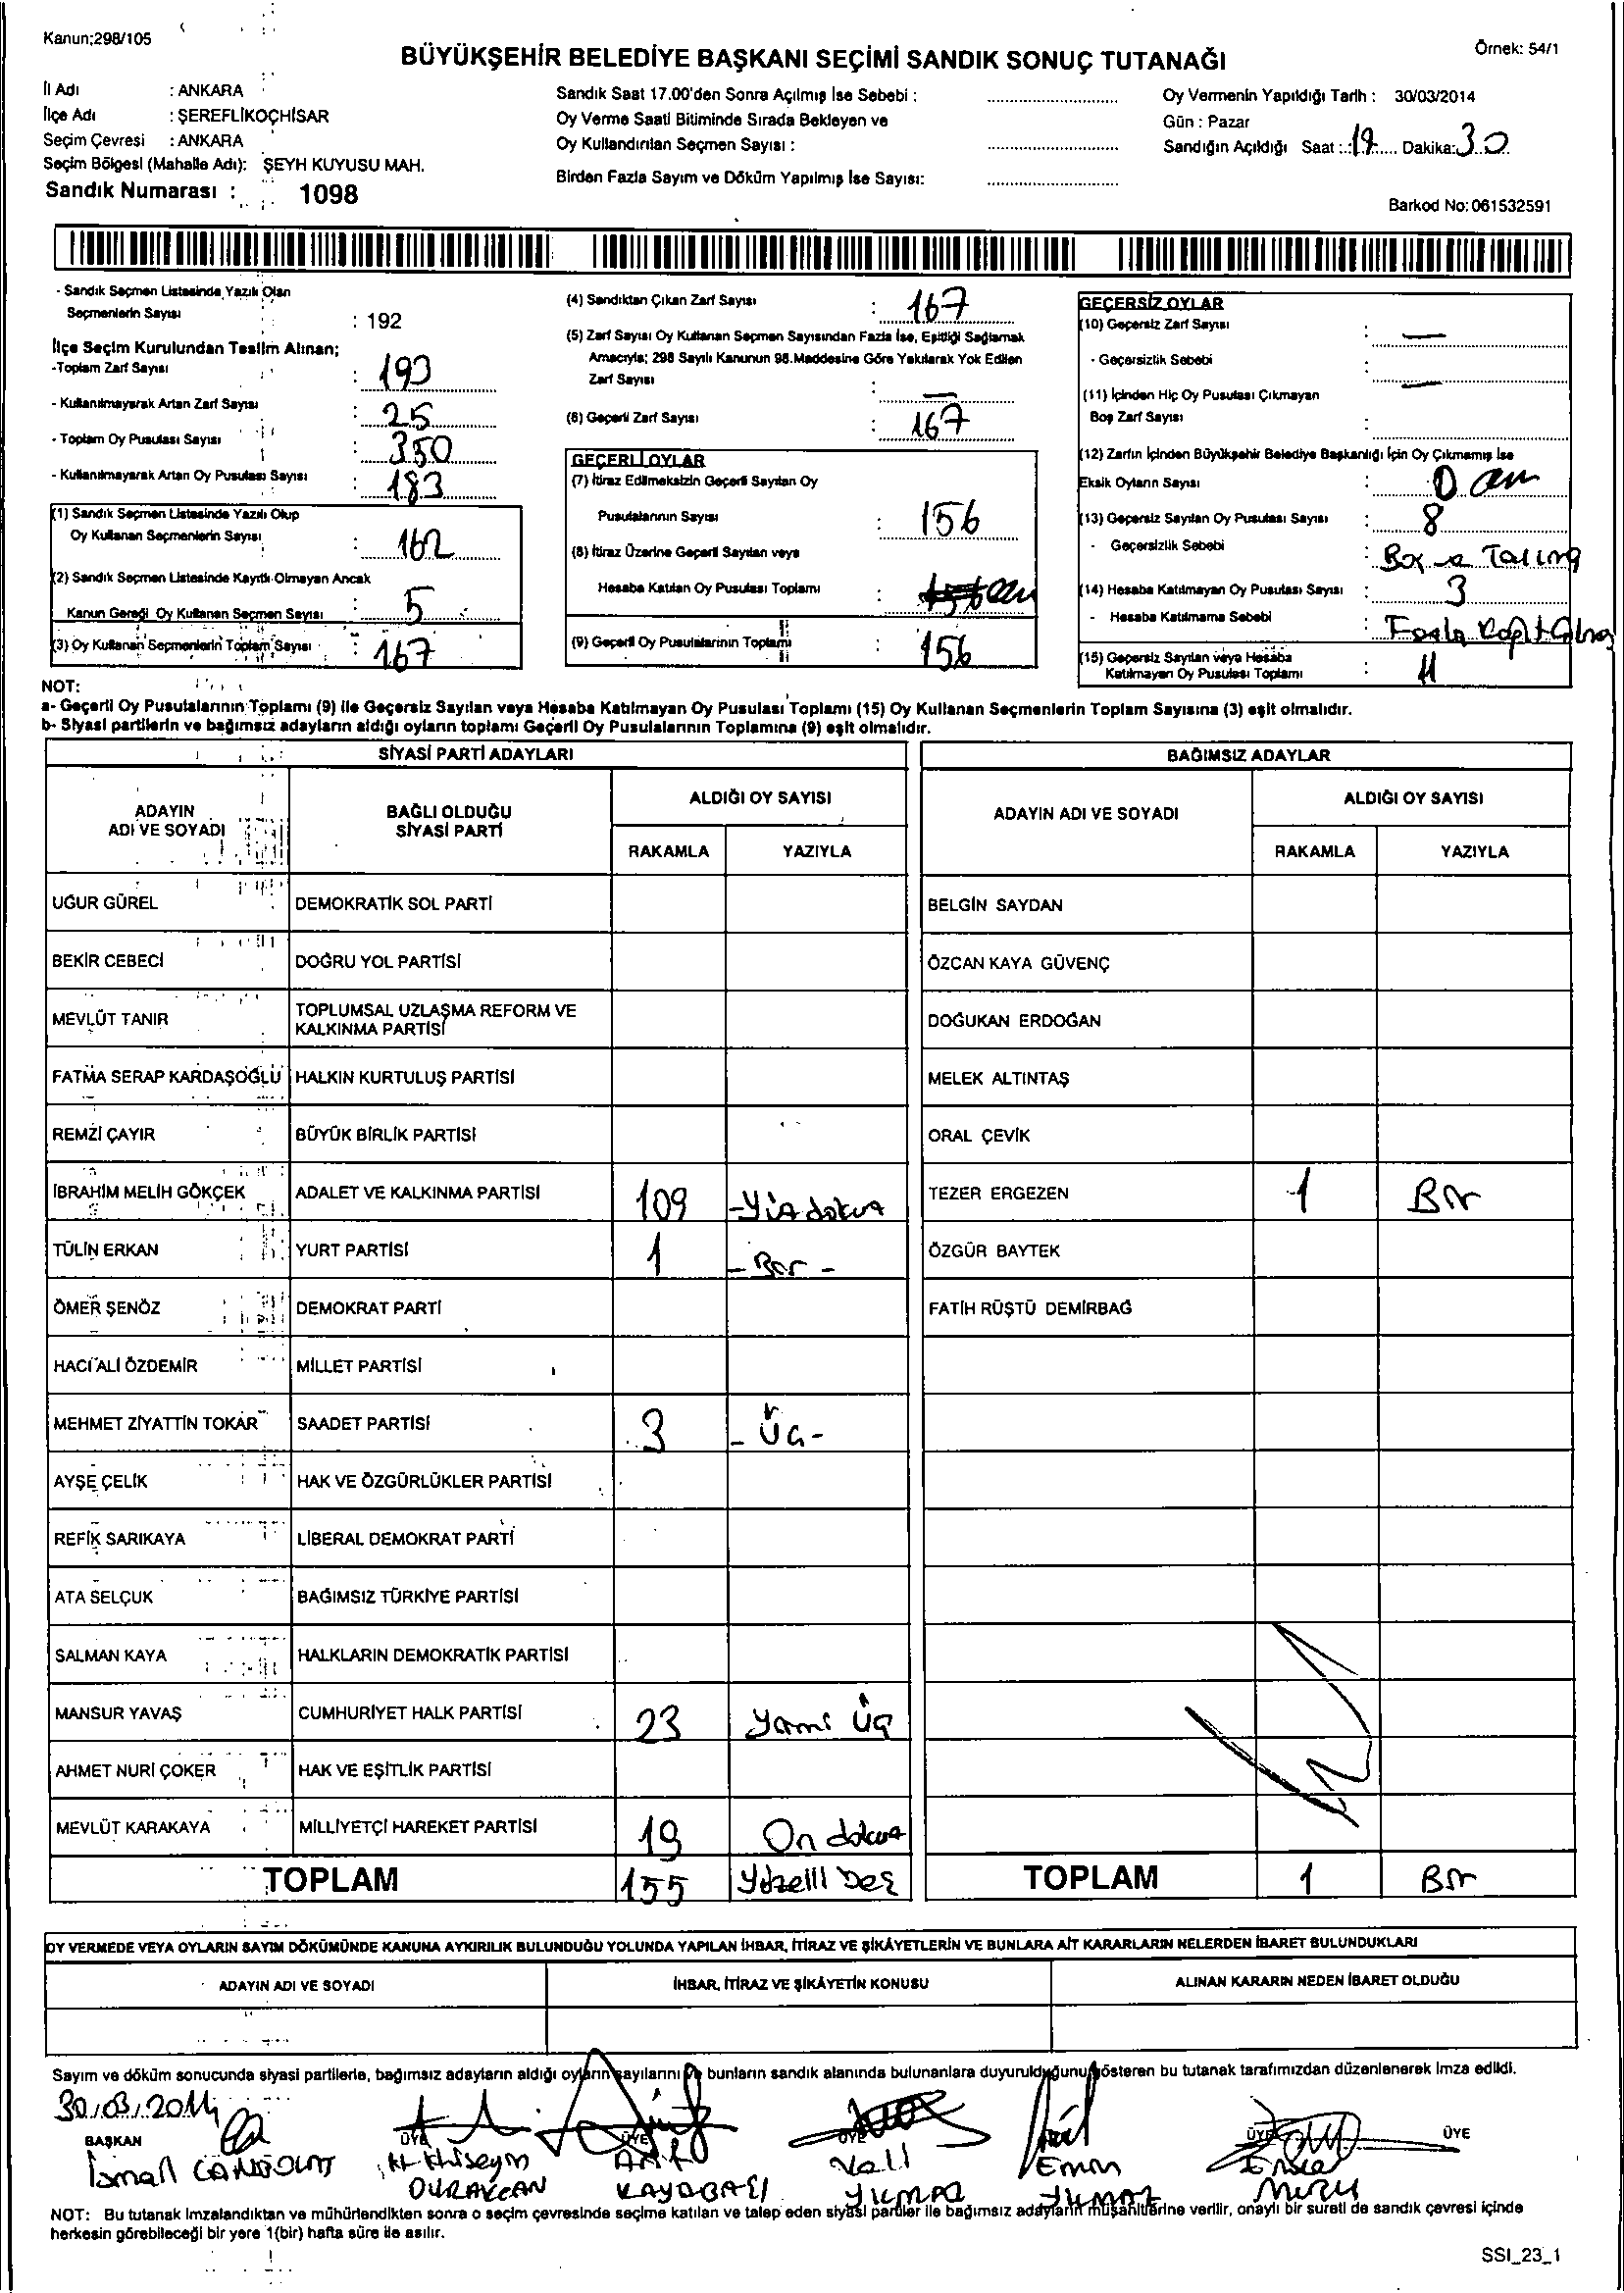 Kanun;298/105
Örnek: 54/1
BÜYÜKŞEHİR BELEDİYE BAŞKANI SEÇİMİ SANDIK SONUÇ TUTANAĞI
İl Adı : ANKARA
İlçe Adı : ŞEREFLİKOÇHİSAR
Seçim Çevresi : ANKARA
Seçim Bölgesi (Mahalle Adı): ŞEYH KUYUSU MAH.
Sandık Numarası : 1098
Sandık Saat 17.00'den Sonra Açılmış İse Sebebi :
Oy Verme Saati Bitiminde Sırada Bekleyen ve
Oy Kullandırılan Seçmen Sayısı :
Birden Fazla Sayım ve Döküm Yapılmış İse Sayısı:
Oy Vermenin Yapıldığı Tarih : 30/03/2014
Gün : Pazar
Sandığın Açıldığı Saat : 17 Dakika: 30
Barkod No: 061532591
- Sandık Seçmen Listesinde Yazılı Olan
Seçmenlerin Sayısı : 192
İlçe Seçim Kurulundan Teslim Alınan;
-Toplam Zarf Sayısı : 193
- Kullanılmayarak Artan Zarf Sayısı : 25
- Toplam Oy Pusulası Sayısı : 350
- Kullanılmayarak Artan Oy Pusulası Sayısı : 183
(1) Sandık Seçmen Listesinde Yazılı Olup
Oy Kullanan Seçmenlerin Sayısı : 162
(2) Sandık Seçmen Listesinde Kayıtlı Olmayan Ancak
Kanun Gereği Oy Kullanan Seçmen Sayısı : 5
(3) Oy Kullanan Seçmenlerin Toplam Sayısı : 167
(4) Sandıktan Çıkan Zarf Sayısı : 167
(5) Zarf Sayısı Oy Kullanan Seçmen Sayısından Fazla İse, Eşitliği Sağlamak
Amacıyla; 298 Sayılı Kanunun 98.Maddesine Göre Yakılarak Yok Edilen
Zarf Sayısı : —
(6) Geçerli Zarf Sayısı : 167
GEÇERLİ OYLAR
(7) İtiraz Edilmeksizin Geçerli Sayılan Oy
Pusulalarının Sayısı : 156
(8) İtiraz Üzerine Geçerli Sayılan veya
Hesaba Katılan Oy Pusulası Toplamı :
(9) Geçerli Oy Pusulalarının Toplamı : 156
GEÇERSİZ OYLAR
(10) Geçersiz Zarf Sayısı : —
- Geçersizlik Sebebi : —
(11) İçinden Hiç Oy Pusulası Çıkmayan
Boş Zarf Sayısı :
(12) Zarfın İçinden Büyükşehir Belediye Başkanlığı İçin Oy Çıkmamış İse
Eksik Oyların Sayısı : 0
(13) Geçersiz Sayılan Oy Pusulası Sayısı : 8
- Geçersizlik Sebebi :
(14) Hesaba Katılmayan Oy Pusulası Sayısı : 3
- Hesaba Katılmama Sebebi :
(15) Geçersiz Sayılan veya Hesaba
Katılmayan Oy Pusulası Toplamı : 11
NOT:
a- Geçerli Oy Pusulalarının Toplamı (9) ile Geçersiz Sayılan veya Hesaba Katılmayan Oy Pusulası Toplamı (15) Oy Kullanan Seçmenlerin Toplam Sayısına (3) eşit olmalıdır.
b- Siyasi partilerin ve bağımsız adayların aldığı oyların toplamı Geçerli Oy Pusulalarının Toplamına (9) eşit olmalıdır.
SİYASİ PARTİ ADAYLARI
BAĞIMSIZ ADAYLAR
ADAYIN ADI VE SOYADI
BAĞLI OLDUĞU SİYASİ PARTİ
ALDIĞI OY SAYISI
RAKAMLA YAZIYLA
ADAYIN ADI VE SOYADI
ALDIĞI OY SAYISI
RAKAMLA YAZIYLA
UĞUR GÜREL DEMOKRATİK SOL PARTİ BELGİN SAYDAN
BEKİR CEBECİ DOĞRU YOL PARTİSİ ÖZCAN KAYA GÜVENÇ
MEVLÜT TANIR TOPLUMSAL UZLAŞMA REFORM VE KALKINMA PARTİSİ DOĞUKAN ERDOĞAN
FATMA SERAP KARDAŞOĞLU HALKIN KURTULUŞ PARTİSİ MELEK ALTINTAŞ
REMZİ ÇAYIR BÜYÜK BİRLİK PARTİSİ ORAL ÇEVİK
İBRAHİM MELİH GÖKÇEK ADALET VE KALKINMA PARTİSİ 109 TEZER ERGEZEN 1 Bir
TÜLİN ERKAN YURT PARTİSİ 1 - Bir - ÖZGÜR BAYTEK
ÖMER ŞENÖZ DEMOKRAT PARTİ FATİH RÜŞTÜ DEMİRBAĞ
HACI ALİ ÖZDEMİR MİLLET PARTİSİ
MEHMET ZİYATTİN TOKAR SAADET PARTİSİ 3 - Üç -
AYŞE ÇELİK HAK VE ÖZGÜRLÜKLER PARTİSİ
REFİK SARIKAYA LİBERAL DEMOKRAT PARTİ
ATA SELÇUK BAĞIMSIZ TÜRKİYE PARTİSİ
SALMAN KAYA HALKLARIN DEMOKRATİK PARTİSİ
MANSUR YAVAŞ CUMHURİYET HALK PARTİSİ 23 Yirmi Üç
AHMET NURİ ÇOKER HAK VE EŞİTLİK PARTİSİ
MEVLÜT KARAKAYA MİLLİYETÇİ HAREKET PARTİSİ 19 On dokuz
TOPLAM 155 Yüzelli Beş TOPLAM 1 Bir
OY VERMEDE VEYA OYLARIN SAYIM DÖKÜMÜNDE KANUNA AYKIRILIK BULUNDUĞU YOLUNDA YAPILAN İHBAR, İTİRAZ VE ŞİKÂYETLERİN VE BUNLARA AİT KARARLARIN NELERDEN İBARET BULUNDUKLARI
ADAYIN ADI VE SOYADI İHBAR, İTİRAZ VE ŞİKÂYETİN KONUSU ALINAN KARARIN NEDEN İBARET OLDUĞU
Sayım ve döküm sonucunda siyasi partilerle, bağımsız adayların aldığı oyların sayılarını ve bunların sandık alanında bulunanlara duyurulduğunu gösteren bu tutanak tarafımızdan düzenlenerek imza edildi.
30.03.2014
BAŞKAN ÜYE ÜYE ÜYE ÜYE ÜYE
İsmail H. Hüseyin Arif Veli Emin
DURAKCAN KAYABAŞI YILMAZ YILMAZ
NOT: Bu tutanak imzalandıktan ve mühürlendikten sonra o seçim çevresinde seçime katılan ve talep eden siyasi partiler ile bağımsız adayların müşahitlerine verilir, onaylı bir sureti de sandık çevresi içinde
herkesin görebileceği bir yere 1(bir) hafta süre ile asılır.
SSI_23_1